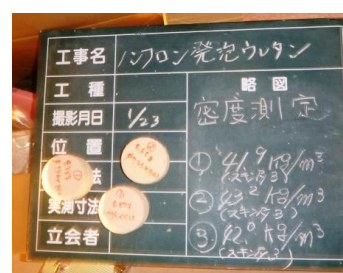 工事名 ノンフロン発泡ウレタン
工種
撮影月日 1/23
位置
法
実測寸法
立会者
略図
密度測定
① 41.9 kg/m³
(スキン 3)
② 43.2 kg/m³
(スキン 3)
③ 42.0 kg/m³
(スキン 3)